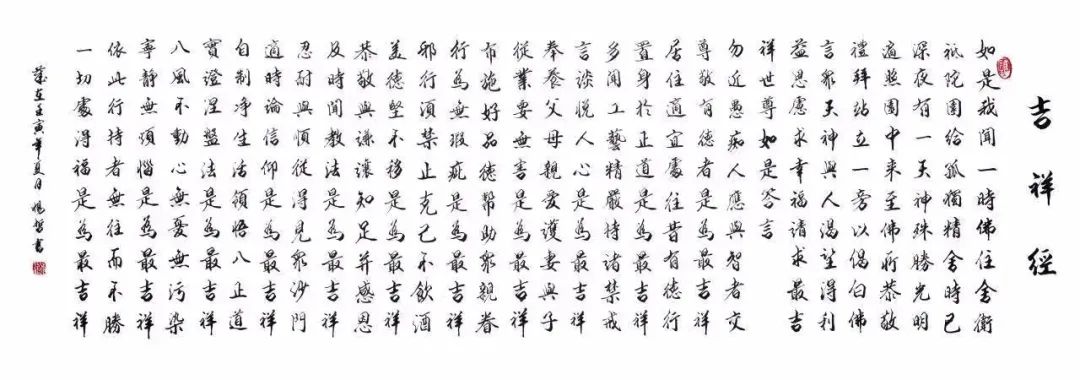 吉祥經
如是我聞一時佛住舍衛
祇陀園給孤獨精舍時已
深夜有一天神殊勝光明
遍照園中来至佛所恭敬
禮拜站立一旁以偈白佛
言眾天神與人渴望得利
益思慮求幸福請求最吉
祥世尊如是答言
勿近愚痴人應與智者交
尊敬有德者是為最吉祥
居住適宜處往昔有德行
置身於正道是為最吉祥
多聞工藝精嚴持诸禁戒
言談悦人心是為最吉祥
奉養父母親愛護妻與子
從業要無害是為最吉祥
布施好品德幫助眾親眷
行為無瑕疵是為最吉祥
邪行須禁止克己不飲酒
美德堅不移是為最吉祥
恭敬與謙讓知足并感恩
及時聞教法是為最吉祥
忍耐與順從得見眾沙門
適時論信仰是為最吉祥
自制净生活領悟八正道
實證涅盤法是為最吉祥
八風不動心無憂無污染
寧静無煩惱是為最吉祥
依此行持者無往而不勝
一切處得福是為最吉祥
歲在壬寅年夏月楊書